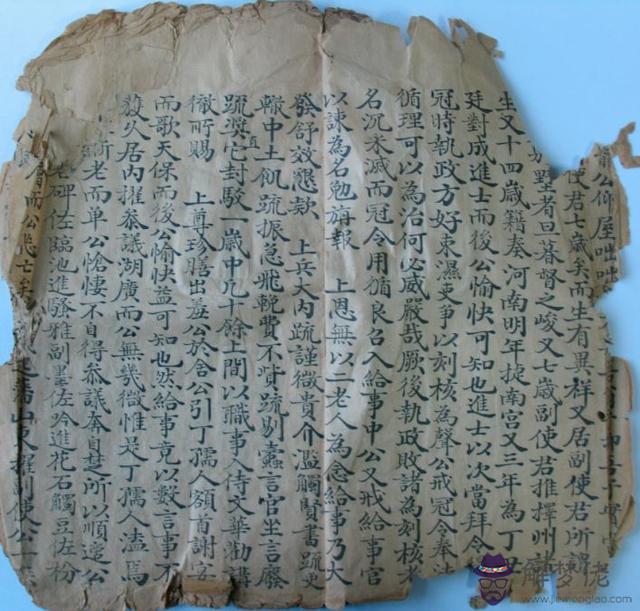 公仰屋咄咄
使君七歲矣而生有異祥又居副使君所
塾者旦暮督之峻又七歲副使君推擇州
生又十四歲籍奏河南明年捷南宮又三年為丁
廷對成進士而後公愉快可知也進士以次當拜令
冠時執政方好束濕吏爭以刻核為聲公戒冠令奉法
循理可以為治何必威嚴哉厥後執政敗諸為刻核者
名沉未滅而冠令用循良名入給事中公又戒給事官
以諫為名勉旃報 上恩無以二老人為念給事乃大
發舒效懇欵 上兵大內疏謹微貴介濫觴賢書疏吏
轍中土飢疏振急飛輓費不貲疏剔蠹言官坐言廢
疏獎直它封駁一歲中凡十餘上間以職事入侍文華勸講
徹所賜 上尊珍膳出羞公於舍公引丁孺人額首謝宴
而歌天保而後公愉快益可知也然給事竟以數言事不
獲久居內擢叅議湖廣而公無幾微惟是丁孺人溘焉
老而單公愴悽不自得叅議奉自楚之所以順適公
老碑佐臨池進騷雅副墨佐吟進花石觴豆佐枌
而公 亡矣 舊山又擢副使公一
解梦佬
www.jiemenglao.com